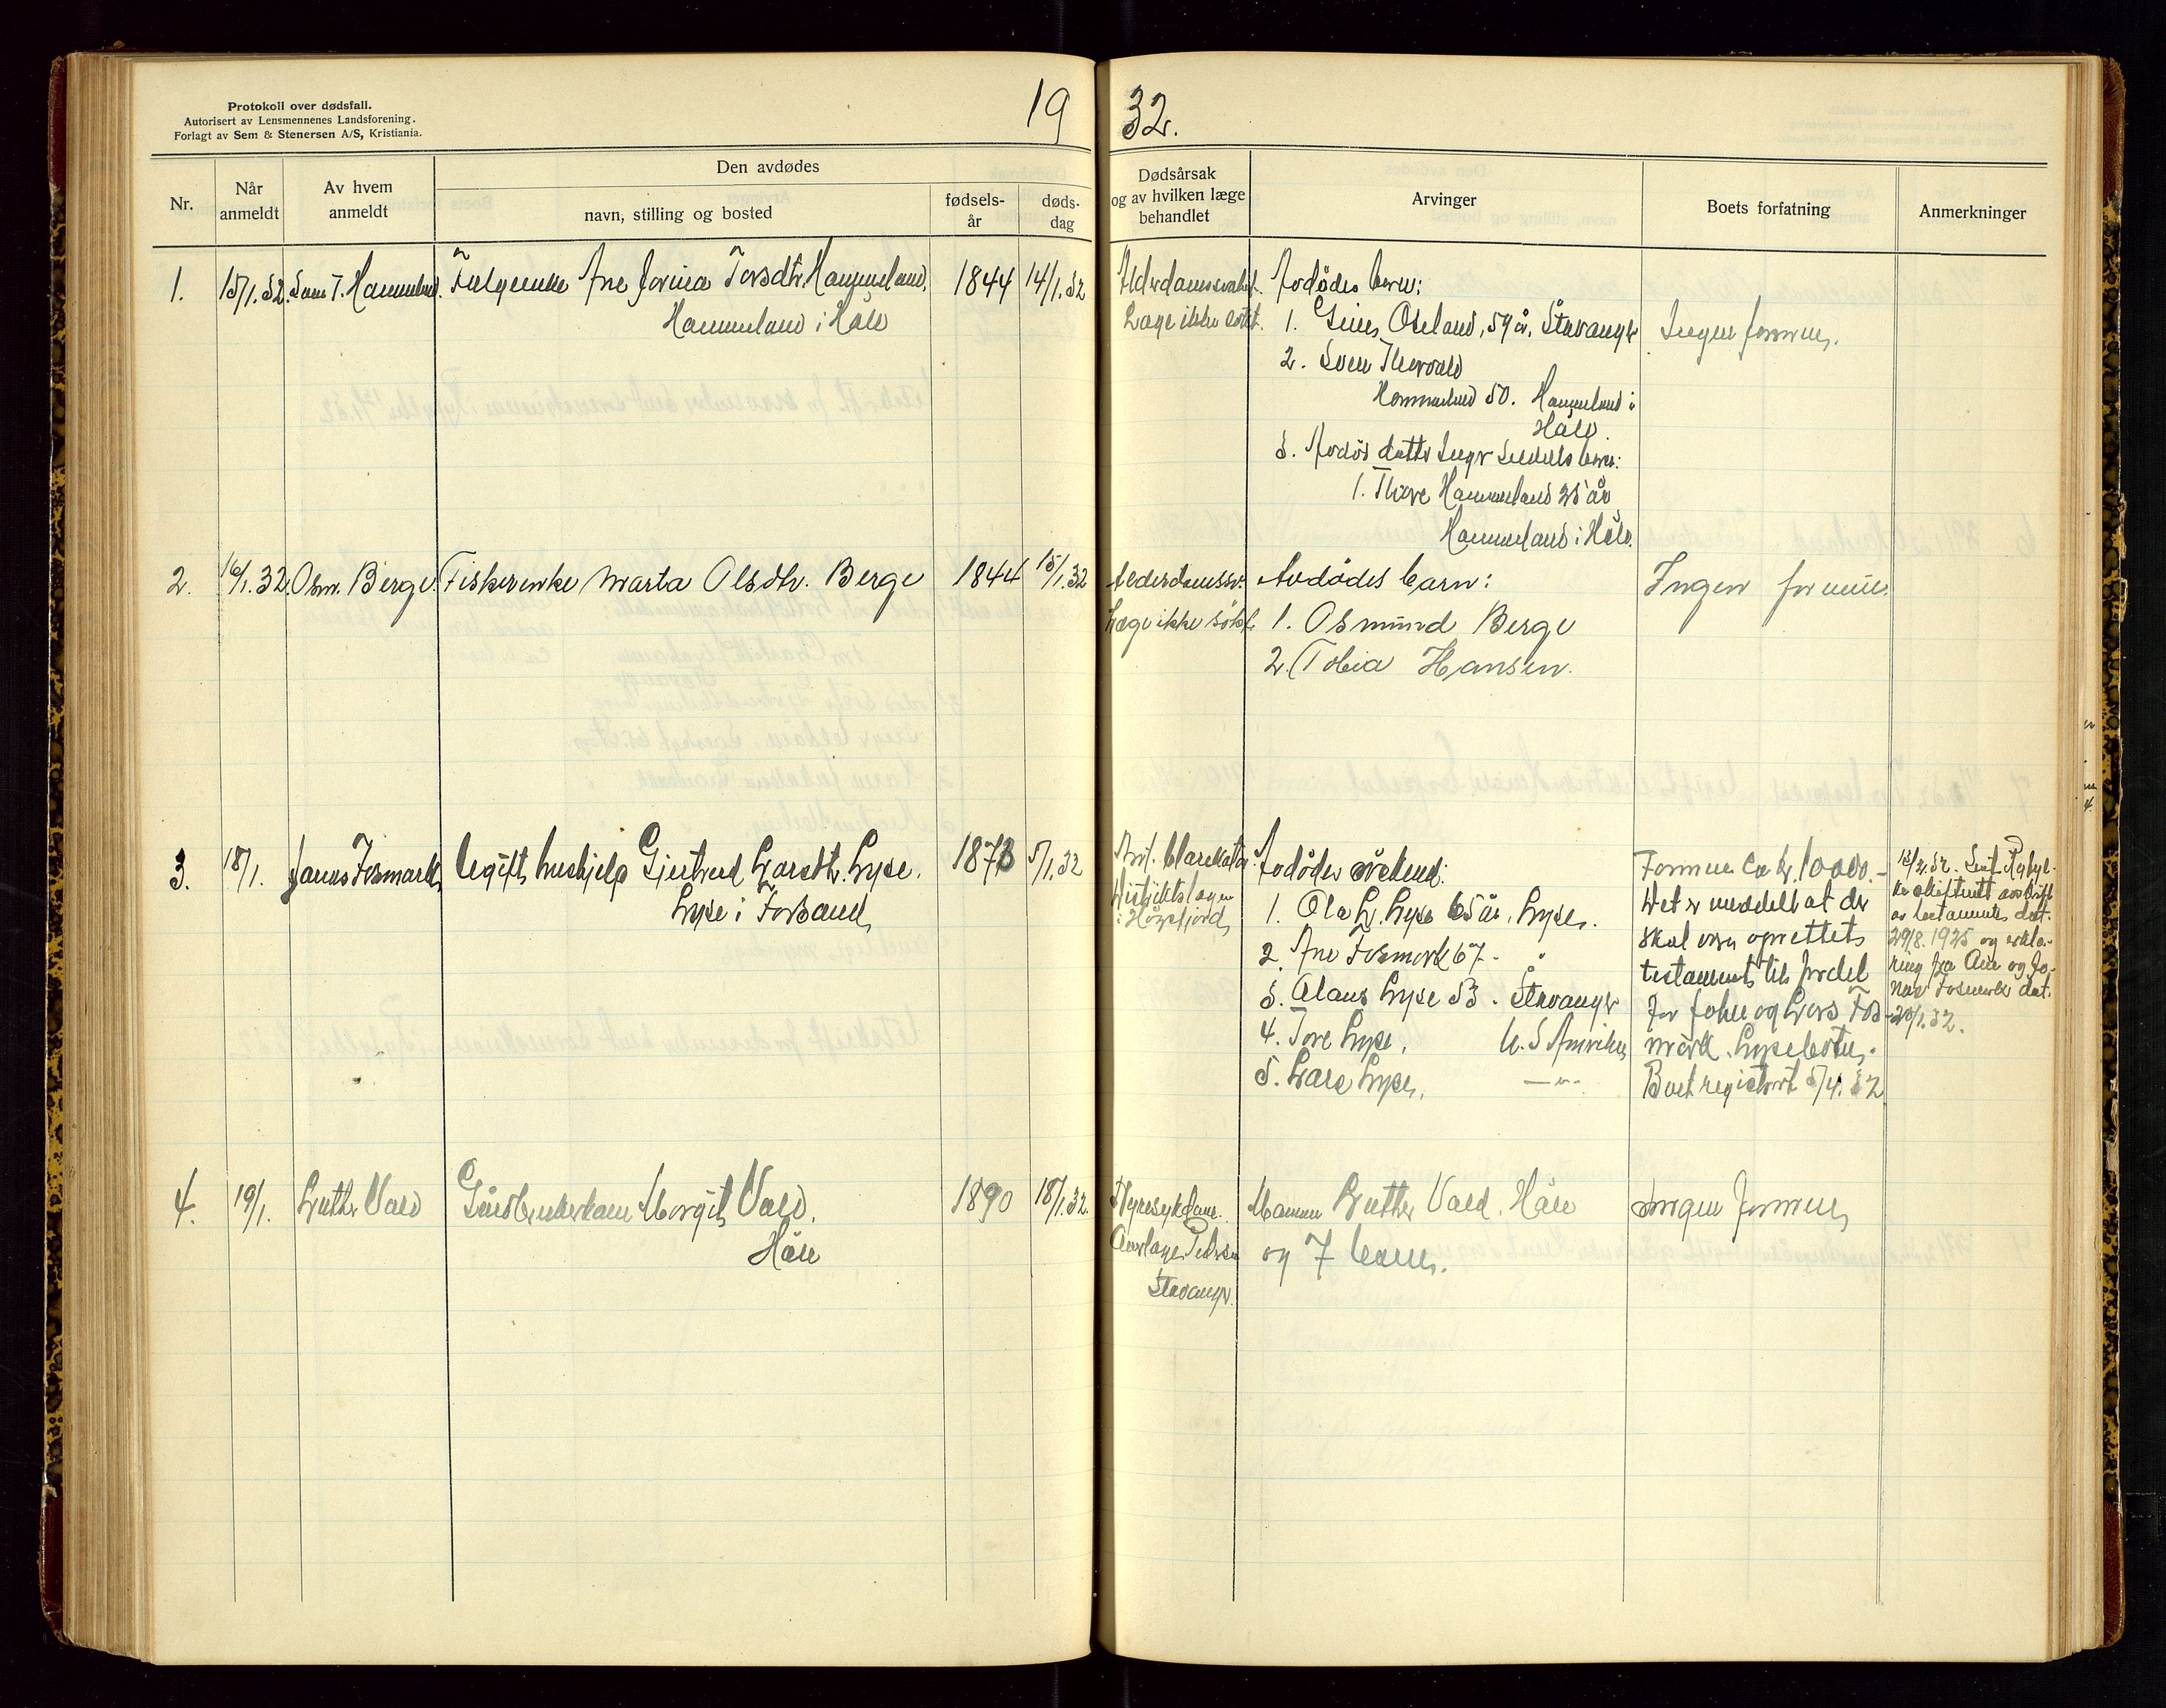 Protokoll over dødsfall.
Autorisert av Lensmennenes Landsforening.
Forlagt av Sem & Stenersen A/S, Kristiania.
19 32.
Nr.
Når anmeldt
Av hvem anmeldt
Den avdødes
navn, stilling og bosted
fødsels-år
døds-dag
Dødsårsak og av hvilken læge behandlet
Arvinger
Boets forfatning
Anmerkninger
1. 15/1.32. Sven T. Hammeland. Ane Torsdtr. Hammeland, 1844 14/1.32
Hammeland i Høle
Alderdomssvakh.
Læge ikke søkt.
Avdødes barn:
1. Oseland, 59 år, Stavanger
2. Sven Thorvald
Hommeland 50. Hammeland i
Høle
3. Avdød datter barn:
1. Tore Hammeland 25 år
Hammeland i Høle.
Ingen formue.
2. 16/1.32. Osm. Berge. Fiskerenke Marta Olsdtr. Berge 1844 15/1.32
Alderdomssv.
Læge ikke søkt.
Avdødes barn:
1. Osmund Berge
2. Tobia Hansen.
Ingen formue.
3. 18/1. Fosmark Ugift hushjelp Gjertrud Larsdtr. Lyse. 1873 5/1.32
Lyse i Forsand
Distriktslægen
i Høgsfjord
Avdødes søskend:
1. Ola L. Lyse 65 år, Lyse.
2. Ane Fosmork 67 - "
3. Olaus Lyse 53. Stavanger
4. Tore Lyse, U.S Amerika
5. Lars Lyse, —"—
Formue ca kr. 10000.-
Det er meddelt at der
skal være oprettet
testament til fordel
for John og Lars Fos-
mork. Lysebotn.
Boet registrert 5/4.32
13/2.32. Sent Ryfyl-
ke skifterett avskrift
av testamente dat.
29/8.1925 og erklæ-
ring fra Ane og Jo-
nas Fosmork dat.
20/1.32.
4. 19/1. Luther Vald Gårdbrukerkone Margit Vald. 1890 18/1.32.
Høle
Nyresykdom.
Overlæge Pedersen
Stavanger.
Mannen Luther Vald. Høle
og 7 barn.
Ingen formue